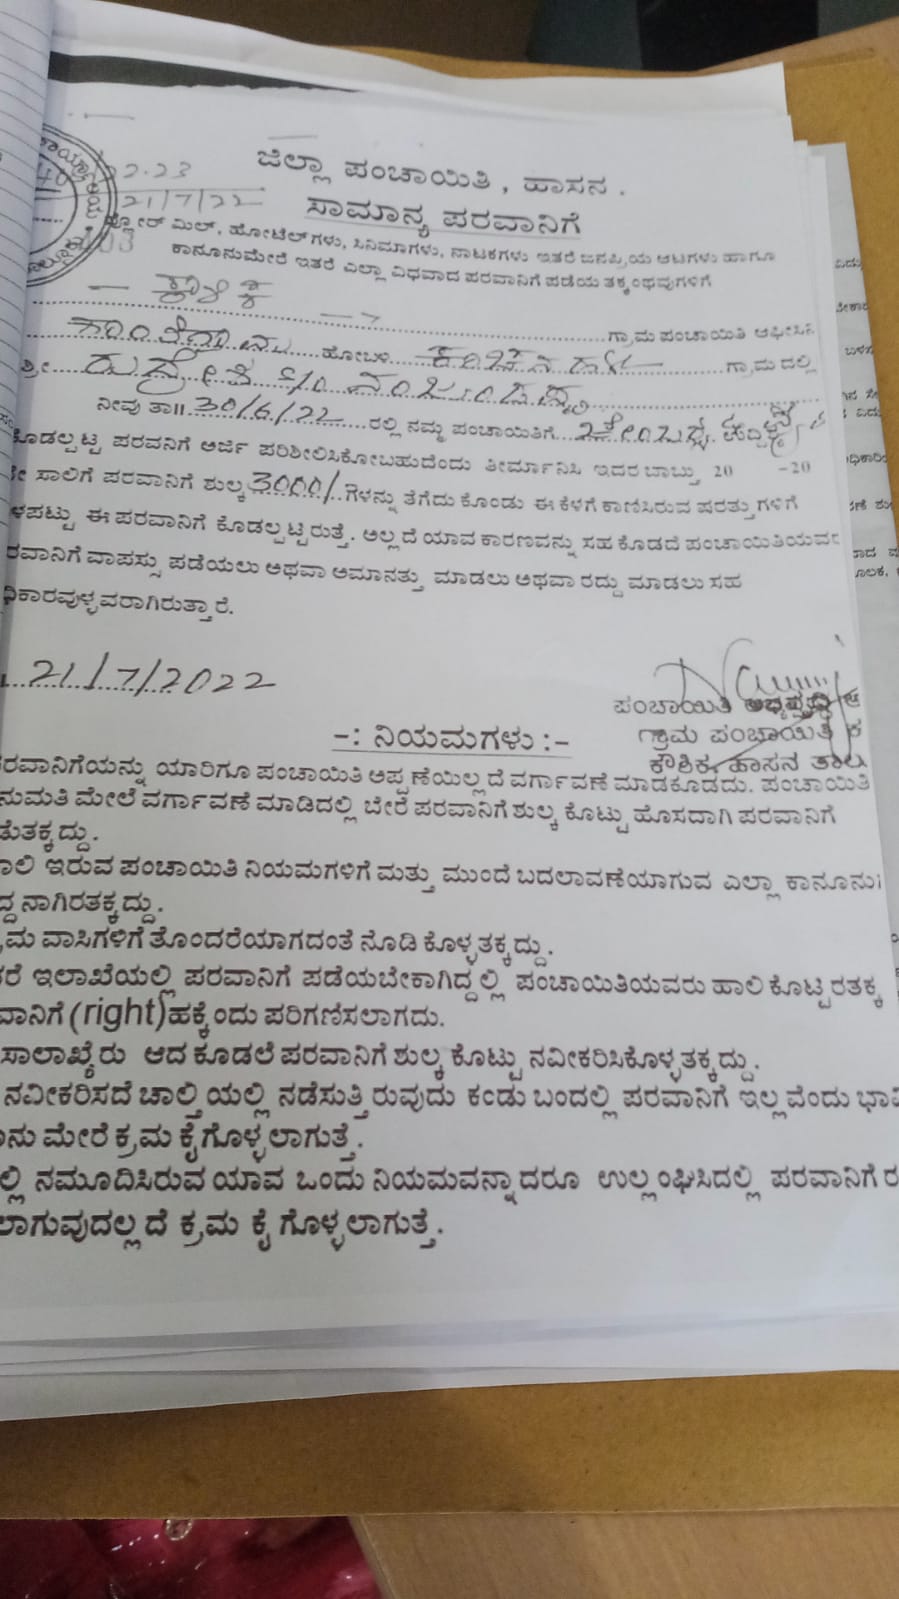 22.23
ಜಿಲ್ಲಾ ಪಂಚಾಯಿತಿ , ಹಾಸನ .
21/7/22
ಸಾಮಾನ್ಯ ಪರವಾನಿಗೆ
ಫ್ಲೋರ್ ಮಿಲ್, ಹೋಟೆಲ್‌ಗಳು, ಸಿನಿಮಾಗಳು, ನಾಟಕಗಳು ಇತರೆ ಜನಪ್ರಿಯ ಆಟಗಳು ಹಾಗೂ
ಕಾನೂನುಮೇರೆ ಇತರೆ ಎಲ್ಲಾ ವಿಧವಾದ ಪರವಾನಿಗೆ ಪಡೆಯ ತಕ್ಕಂಥವುಗಳಿಗೆ
ಗ್ರಾಮ ಪಂಚಾಯಿತಿ ಆಫೀಸಿನ
ಹೋಬಳಿ ಗ್ರಾಮದಲ್ಲಿ
ಶ್ರೀ
ನೀವು ತಾ॥ 30/6/22 ರಲ್ಲಿ ನಮ್ಮ ಪಂಚಾಯಿತಿಗೆ
ಕೊಡಲ್ಪಟ್ಟ ಪರವನಿಗೆ ಅರ್ಜಿ ಪರಿಶೀಲಿಸಿಕೋಬಹುದೆಂದು ತೀರ್ಮಾನಿಸಿ ಇದರ ಬಾಬ್ತು 20 -20
ನೇ ಸಾಲಿಗೆ ಪರವಾನಿಗೆ ಶುಲ್ಕ 3000/- ಗಳನ್ನು ತೆಗೆದು ಕೊಂಡು ಈ ಕೆಳಗೆ ಕಾಣಿಸಿರುವ ಷರತ್ತುಗಳಿಗೆ
ಳಪಟ್ಟು ಈ ಪರವಾನಿಗೆ ಕೊಡಲ್ಪಟ್ಟಿರುತ್ತೆ. ಅಲ್ಲದೆ ಯಾವ ಕಾರಣವನ್ನು ಸಹ ಕೊಡದೆ ಪಂಚಾಯಿತಿಯವರ
ರವಾನಿಗೆ ವಾಪಸ್ಸು ಪಡೆಯಲು ಅಥವಾ ಅಮಾನತ್ತು ಮಾಡಲು ಅಥವಾ ರದ್ದು ಮಾಡಲು ಸಹ
ಧಿಕಾರವುಳ್ಳವರಾಗಿರುತ್ತಾರೆ.
21/7/2022
ಪಂಚಾಯಿತಿ
ಗ್ರಾಮ ಪಂಚಾಯಿತಿ ಕ
ಕೌಶಿಕ, ಹಾಸನ ತಾಲ
-: ನಿಯಮಗಳು :-
ರವಾನಿಗೆಯನ್ನು ಯಾರಿಗೂ ಪಂಚಾಯಿತಿ ಅಪ್ಪಣೆಯಿಲ್ಲದೆ ವರ್ಗಾವಣೆ ಮಾಡಕೂಡದು. ಪಂಚಾಯಿತಿ
ನುಮತಿ ಮೇಲೆ ವರ್ಗಾವಣೆ ಮಾಡಿದಲ್ಲಿ ಬೇರೆ ಪರವಾನಿಗೆ ಶುಲ್ಕ ಕೊಟ್ಟು ಹೊಸದಾಗಿ ಪರವಾನಿಗೆ
ಡುತಕ್ಕದ್ದು.
ಾಲಿ ಇರುವ ಪಂಚಾಯಿತಿ ನಿಯಮಗಳಿಗೆ ಮತ್ತು ಮುಂದೆ ಬದಲಾವಣೆಯಾಗುವ ಎಲ್ಲಾ ಕಾನೂನು
ದ್ದ ನಾಗಿರತಕ್ಕದ್ದು.
ಮ ವಾಸಿಗಳಿಗೆ ತೊಂದರೆಯಾಗದಂತೆ ನೊಡಿ ಕೊಳ್ಳತಕ್ಕದ್ದು.
ರೆ ಇಲಾಖೆಯಲ್ಲಿ ಪರವಾನಿಗೆ ಪಡೆಯಬೇಕಾಗಿದ್ದಲ್ಲಿ ಪಂಚಾಯಿತಿಯವರು ಹಾಲಿ ಕೊಟ್ಟಿರತಕ್ಕ
ವಾನಿಗೆ (right)ಹಕ್ಕೆಂದು ಪರಿಗಣಿಸಲಾಗದು.
ಸಾಲಾಖೈರು ಆದ ಕೂಡಲೆ ಪರವಾನಿಗೆ ಶುಲ್ಕ ಕೊಟ್ಟು ನವೀಕರಿಸಿಕೊಳ್ಳತಕ್ಕದ್ದು.
ನವೀಕರಿಸದೆ ಚಾಲ್ತಿಯಲ್ಲಿ ನಡೆಸುತ್ತಿರುವುದು ಕಂಡು ಬಂದಲ್ಲಿ ಪರವಾನಿಗೆ ಇಲ್ಲವೆಂದು ಭಾವಿ
ನು ಮೇರೆ ಕ್ರಮ ಕೈಗೊಳ್ಳಲಾಗುತ್ತೆ.
ಲ್ಲಿ ನಮೂದಿಸಿರುವ ಯಾವ ಒಂದು ನಿಯಮವನ್ನಾದರೂ ಉಲ್ಲಂಘಿಸಿದಲ್ಲಿ ಪರವಾನಿಗೆ ರ
ಲಾಗುವುದಲ್ಲದೆ ಕ್ರಮ ಕೈ ಗೊಳ್ಳಲಾಗುತ್ತೆ.